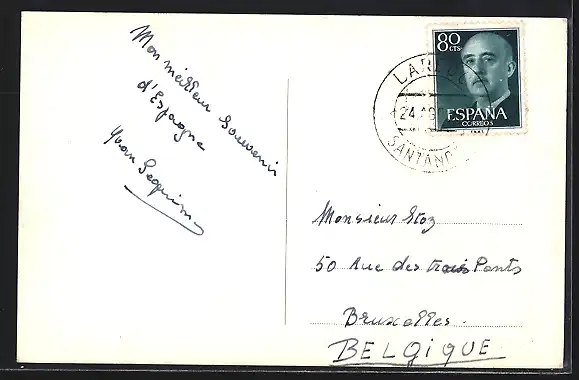 Mon meilleur souvenir
d'Espagne
Yvan
80
CTS
ESPAÑA
CORREOS
LAREDO
24 AG
SANTANDER
Monsieur Stoz
50 Rue des trois Ponts
Bruxelles.
BELGIQUE